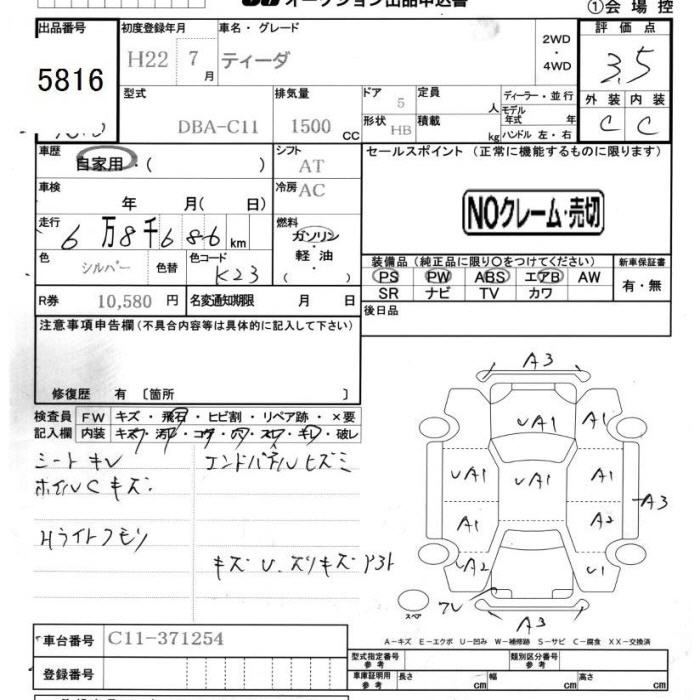 オークション出品申込書
①会場控
出品番号
5816
初度登録年月
H22 7月
車名・グレード
ティーダ
2WD
・
4WD
評価点
3.5
外装 内装
C C
型式
DBA-C11
排気量
1500 CC
ドア 5
形状 HB
定員 人
積載 kg
ディーラー・並行
モデル年式 年
ハンドル 左・右
車歴
自家用・( )
シフト
AT
車検
年 月( 日)
冷房 AC
走行
6万8千686km
燃料
ガソリン
・
軽油
( )
色
シルバー
色替
色コード
K23
R券 10,580 円
名変通知期限 月 日
セールスポイント (正常に機能するものに限ります)
NOクレーム・売切
装備品(純正品に限り○をつけてください)
PS PW ABS エアB AW
SR ナビ TV カワ
新車保証書
有・無
後日品
注意事項申告欄(不具合内容等は具体的に記入して下さい)
修復歴 有 〔箇所 〕
検査員記入欄
FW キズ・飛石・ヒビ割・リペア跡・×要
内装 キズ・汚れ・コゲ・穴・スレ・キレ・破レ
シートキレ
ホイルCキズ
Hライトクモリ
エンドパネルヒズミ
キズ U.スリキズ
A3
UA1
A1 A1
UA1 UA1 A1
A3
A1 A2
A2 U1
A3
スペア
A-キズ E-エクボ U-凹み W-補修跡 S-サビ C-腐食 XX-交換済
車台番号 C11-371254
登録番号
型式指定番号
参考
類別区分番号
参考
車庫証明用
参考
長さ cm 幅 cm 高さ cm